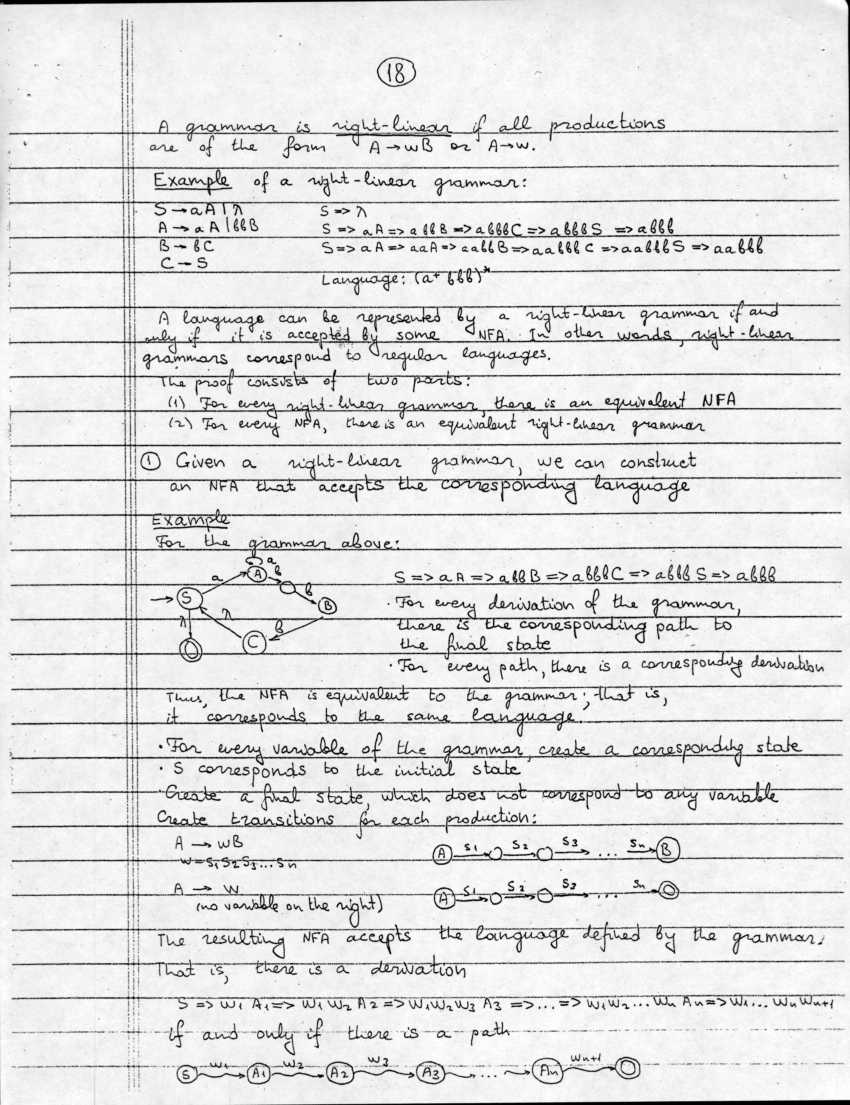 18
A grammar is right-linear if all productions
are of the form A → wB or A → w.
Example of a right-linear grammar:
S → aA | λ    S => λ
A → aA | bbB    S => aA => abbB => abbbC => abbbS => abbb
B → bC    S => aA => aaA => aabbB => aabbbC => aabbbS => aabbb
C → S
Language: (a⁺ bbb)*
A language can be represented by a right-linear grammar if and
only if it is accepted by some NFA. In other words, right-linear
grammars correspond to regular languages.
The proof consists of two parts:
(1) For every right-linear grammar, there is an equivalent NFA
(2) For every NFA, there is an equivalent right-linear grammar
① Given a right-linear grammar, we can construct
an NFA that accepts the corresponding language
Example
For the grammar above:
a
a A b
S b B
λ λ C b
S => aA => abbB => abbbC => abbbS => abbb
· For every derivation of the grammar,
there is the corresponding path to
the final state
· For every path, there is a corresponding derivation
Thus, the NFA is equivalent to the grammar; that is,
it corresponds to the same language.
· For every variable of the grammar, create a corresponding state
· S corresponds to the initial state
· Create a final state, which does not correspond to any variable
Create transitions for each production:
A → wB    A s1 s2 s3 ... sn B
w = s1 s2 s3 ... sn
A → w    A s1 s2 s3 ... sn
(no variable on the right)
The resulting NFA accepts the language defined by the grammar.
That is, there is a derivation
S => w1 A1 => w1 w2 A2 => w1 w2 w3 A3 => ... => w1 w2 ... wn An => w1 ... wn wn+1
if and only if there is a path
S w1 A1 w2 A2 w3 A3 ... An wn+1